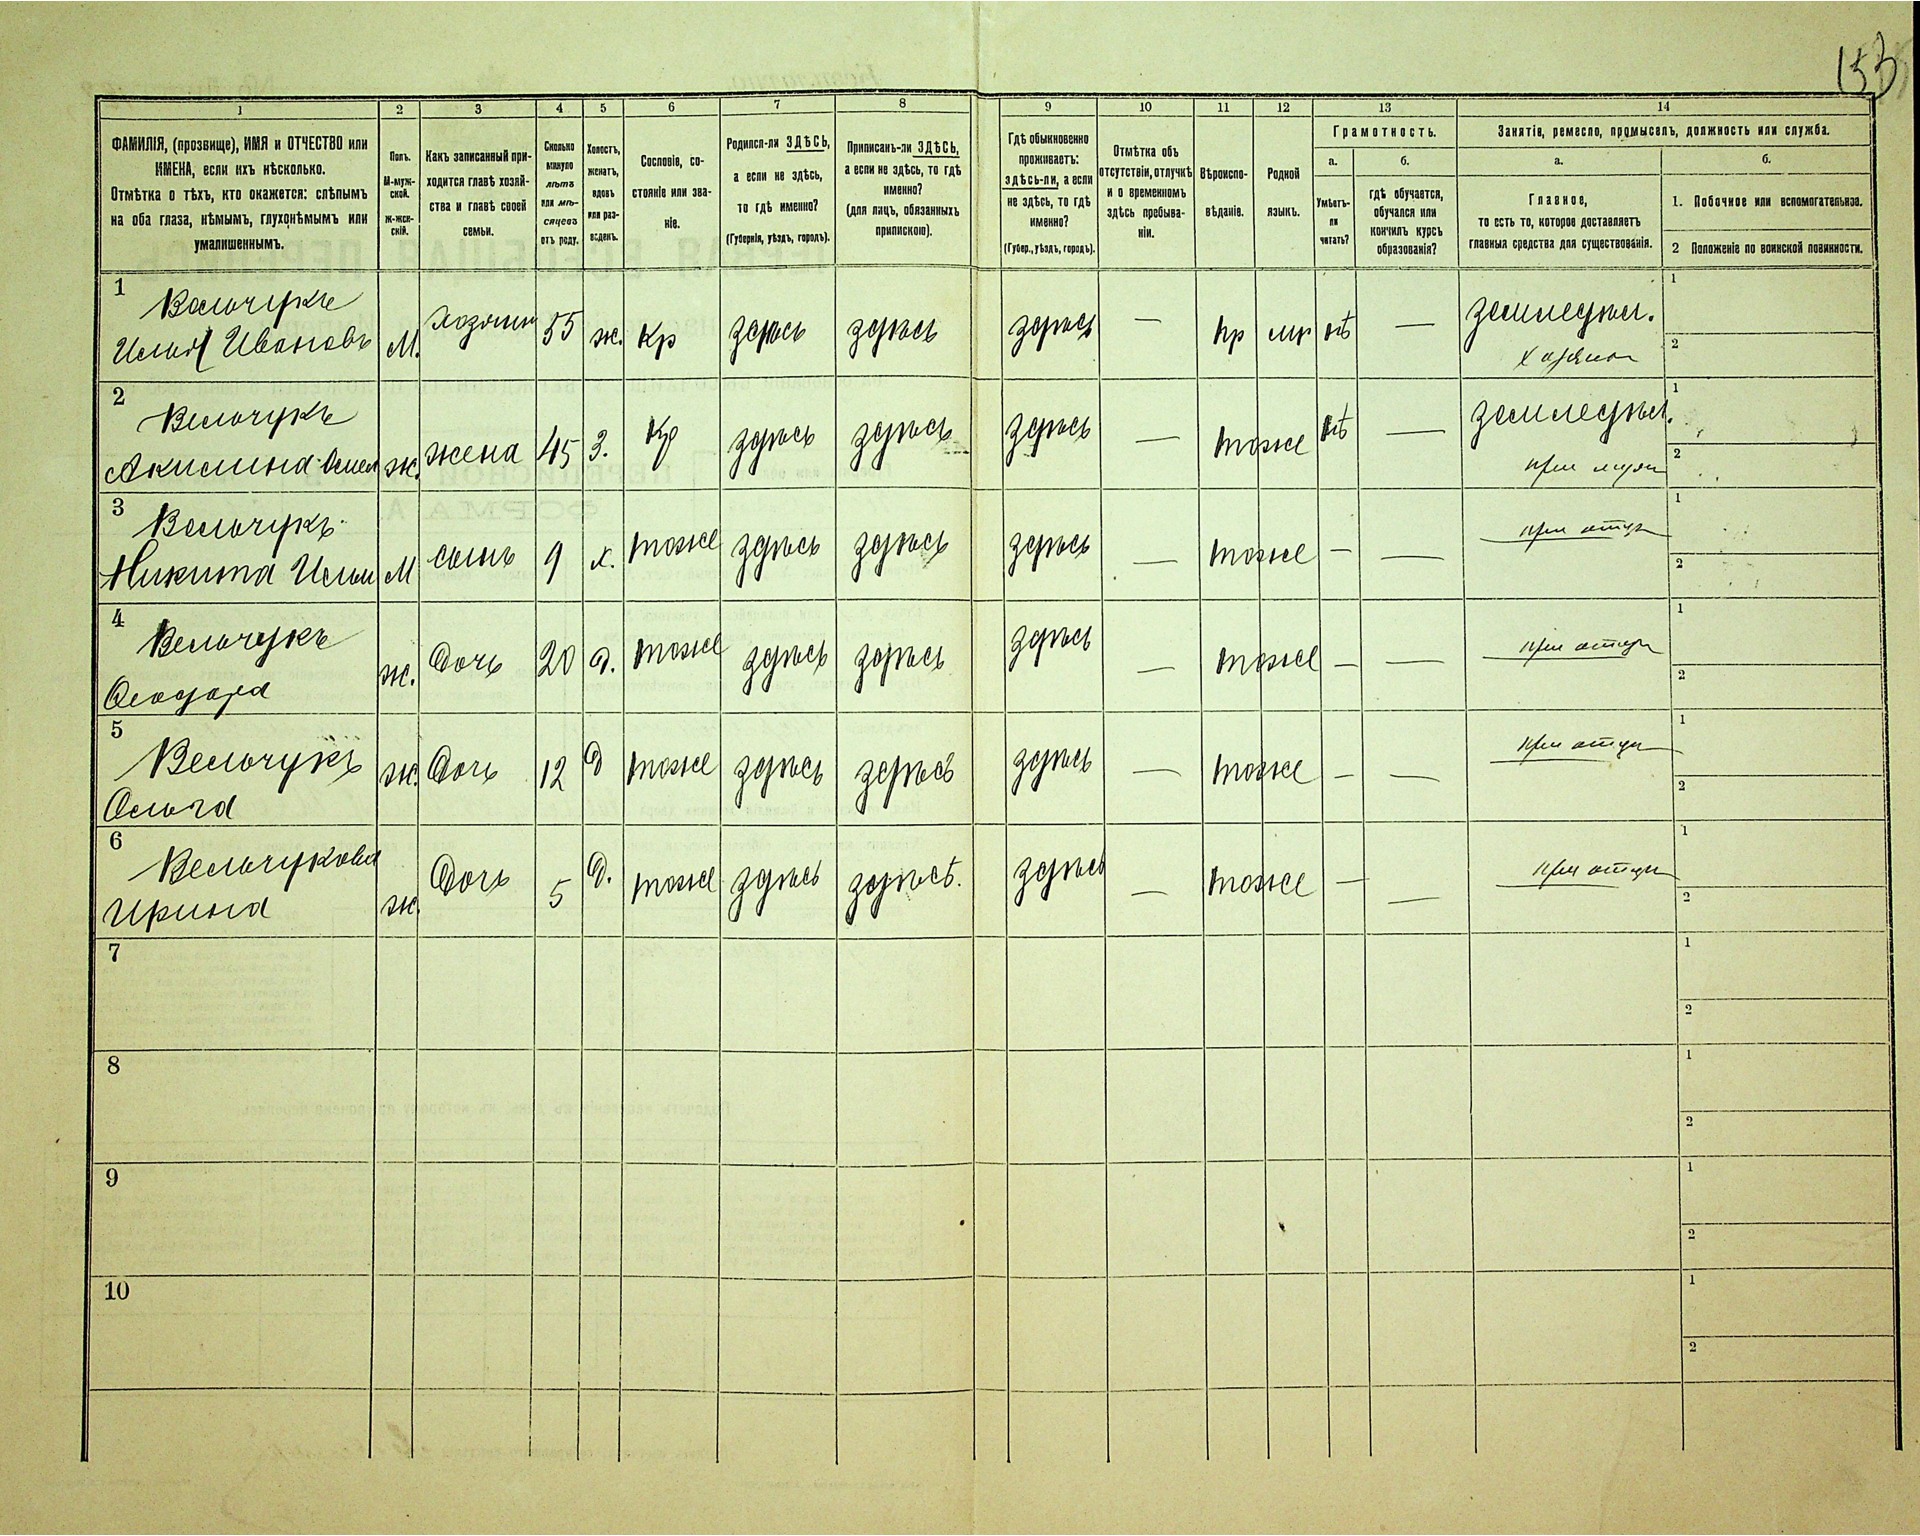 153
1
2
3
4
5
6
7
8
9
10
11
12
13
14
ФАМИЛІЯ, (прозвище), ИМЯ и ОТЧЕСТВО или
ИМЕНА, если ихъ нѣсколько.
Отмѣтка о тѣхъ, кто окажется: слѣпымъ
на оба глаза, нѣмымъ, глухонѣмымъ или
умалишеннымъ.
Полъ.
М-муж-
ской.
Ж-жен-
скій.
Какъ записанный при-
ходится главѣ хозяй-
ства и главѣ своей
семьи.
Сколько
минуло
лѣтъ
или мѣ-
сяцевъ
отъ роду.
Холостъ,
женатъ,
вдовъ
или раз-
веденъ.
Сословіе, со-
стояніе или зва-
ніе.
Родился-ли ЗДѢСЬ,
а если не здѣсь,
то гдѣ именно?
(Губернія, уѣздъ, городъ).
Приписанъ-ли ЗДѢСЬ,
а если не здѣсь, то гдѣ
именно?
(для лицъ, обязанныхъ
припискою).
Гдѣ обыкновенно
проживаетъ:
здѣсь-ли, а если
не здѣсь, то гдѣ
именно?
(Губер., уѣздъ, городъ).
Отмѣтка объ
отсутствіи, отлучкѣ
и о временномъ
здѣсь пребыва-
ніи.
Вѣроиспо-
вѣданіе.
Родной
языкъ.
Грамотность.
а.
б.
Умѣетъ-
ли
читать?
гдѣ обучается,
обучался или
кончилъ курсъ
образованія?
Занятія, ремесло, промыселъ, должность или служба.
а.
б.
Главное,
то есть то, которое доставляетъ
главныя средства для существованія.
1. Побочное или вспомогательное.
2 Положеніе по воинской повинности.
1
Вельчукъ
Илья Ивановъ
М.
хозяинъ
55
ж.
Кр
здѣсь
здѣсь
здѣсь
—
пр
мр
нѣ
—
земледѣл.
хозяин
1
2
2
Вельчукъ
Акилина
ж.
жена
45
З.
Кр
здѣсь
здѣсь
здѣсь
—
тоже
нѣ
—
земледѣл.
при мужи
1
2
3
Вельчукъ
Никита Ильи
М
сынъ
9
х.
тоже
здѣсь
здѣсь
здѣсь
—
тоже
—
—
при отцѣ
1
2
4
Вельчукъ
Ѳеодора
ж.
Дочь
20
д.
тоже
здѣсь
здѣсь
здѣсь
—
тоже
—
—
при отцѣ
1
2
5
Вельчукъ
Ольга
ж.
Дочь
12
д
тоже
здѣсь
здѣсь
здѣсь
—
тоже
—
—
при отцѣ
1
2
6
Вельчукова
Ирина
ж.
Дочь
5
д.
тоже
здѣсь
здѣсь.
здѣсь
—
тоже
—
—
при отцѣ
1
2
7
1
2
8
1
2
9
1
2
10
1
2